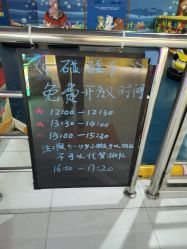 碰碰车
免费开放时间
12:00-12:30
13:30-14:00
15:00-15:30
注:限5-12岁小朋友可玩,物品
不可以代替排队
16:50-17:20